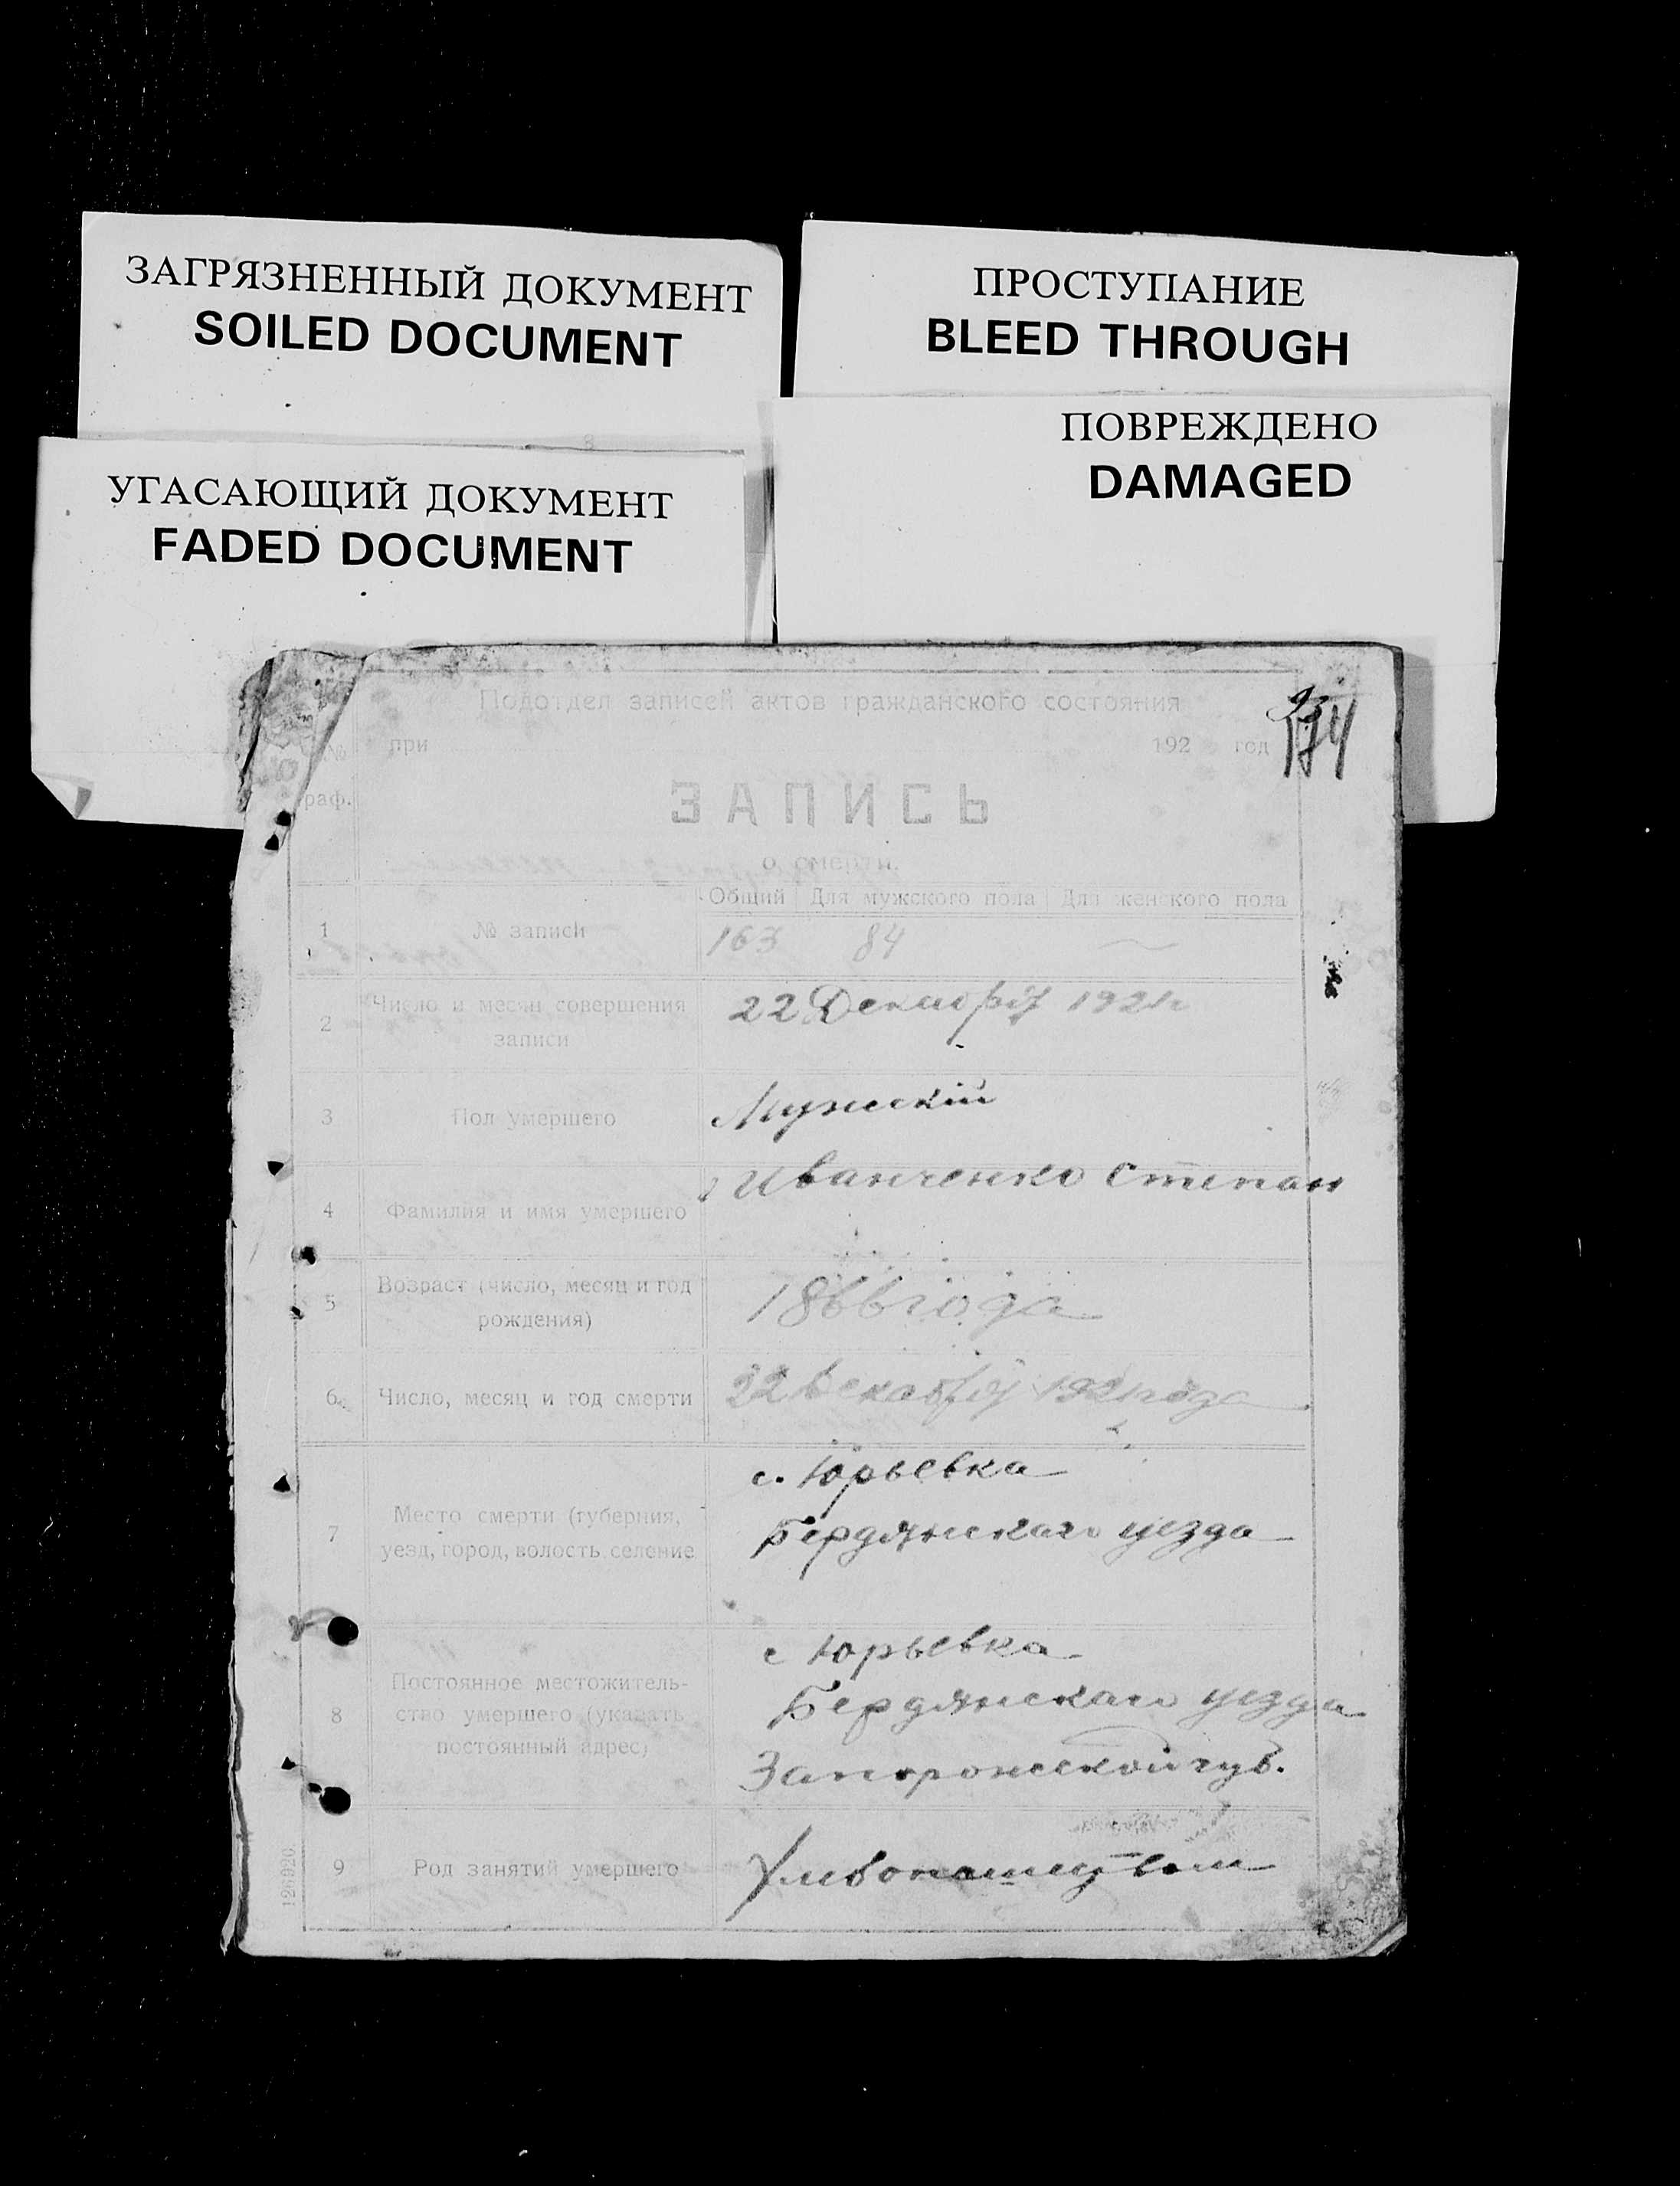 ЗАГРЯЗНЕННЫЙ ДОКУМЕНТ
SOILED DOCUMENT
ПРОСТУПАНИЕ
BLEED THROUGH
УГАСАЮЩИЙ ДОКУМЕНТ
FADED DOCUMENT
ПОВРЕЖДЕНО
DAMAGED
Подотдел записей актов гражданского состояния
№ при 192 год
граф.
ЗАПИСЬ
о смерти.
Общий Для мужского пола Для женского пола
1 № записи 163 84 —
2 Число и месяц совершения
записи
22 Декабря 1921г
3 Пол умершего Мужскiй
4 Фамилия и имя умершего Иванченко Степан
5 Возраст (число, месяц и год
рождения)
1866 года
6 Число, месяц и год смерти 22 декабря 1921 года
7 Место смерти (губерния,
уезд, город, волость, селение
с. Юрьевка
Бердянскаго уезда
8 Постоянное местожитель-
ство умершего (указать
постоянный адрес)
с Юрьевка
Бердянскаго уезда
Запорожской губ.
9 Род занятий умершего Хлебопашеством
126920